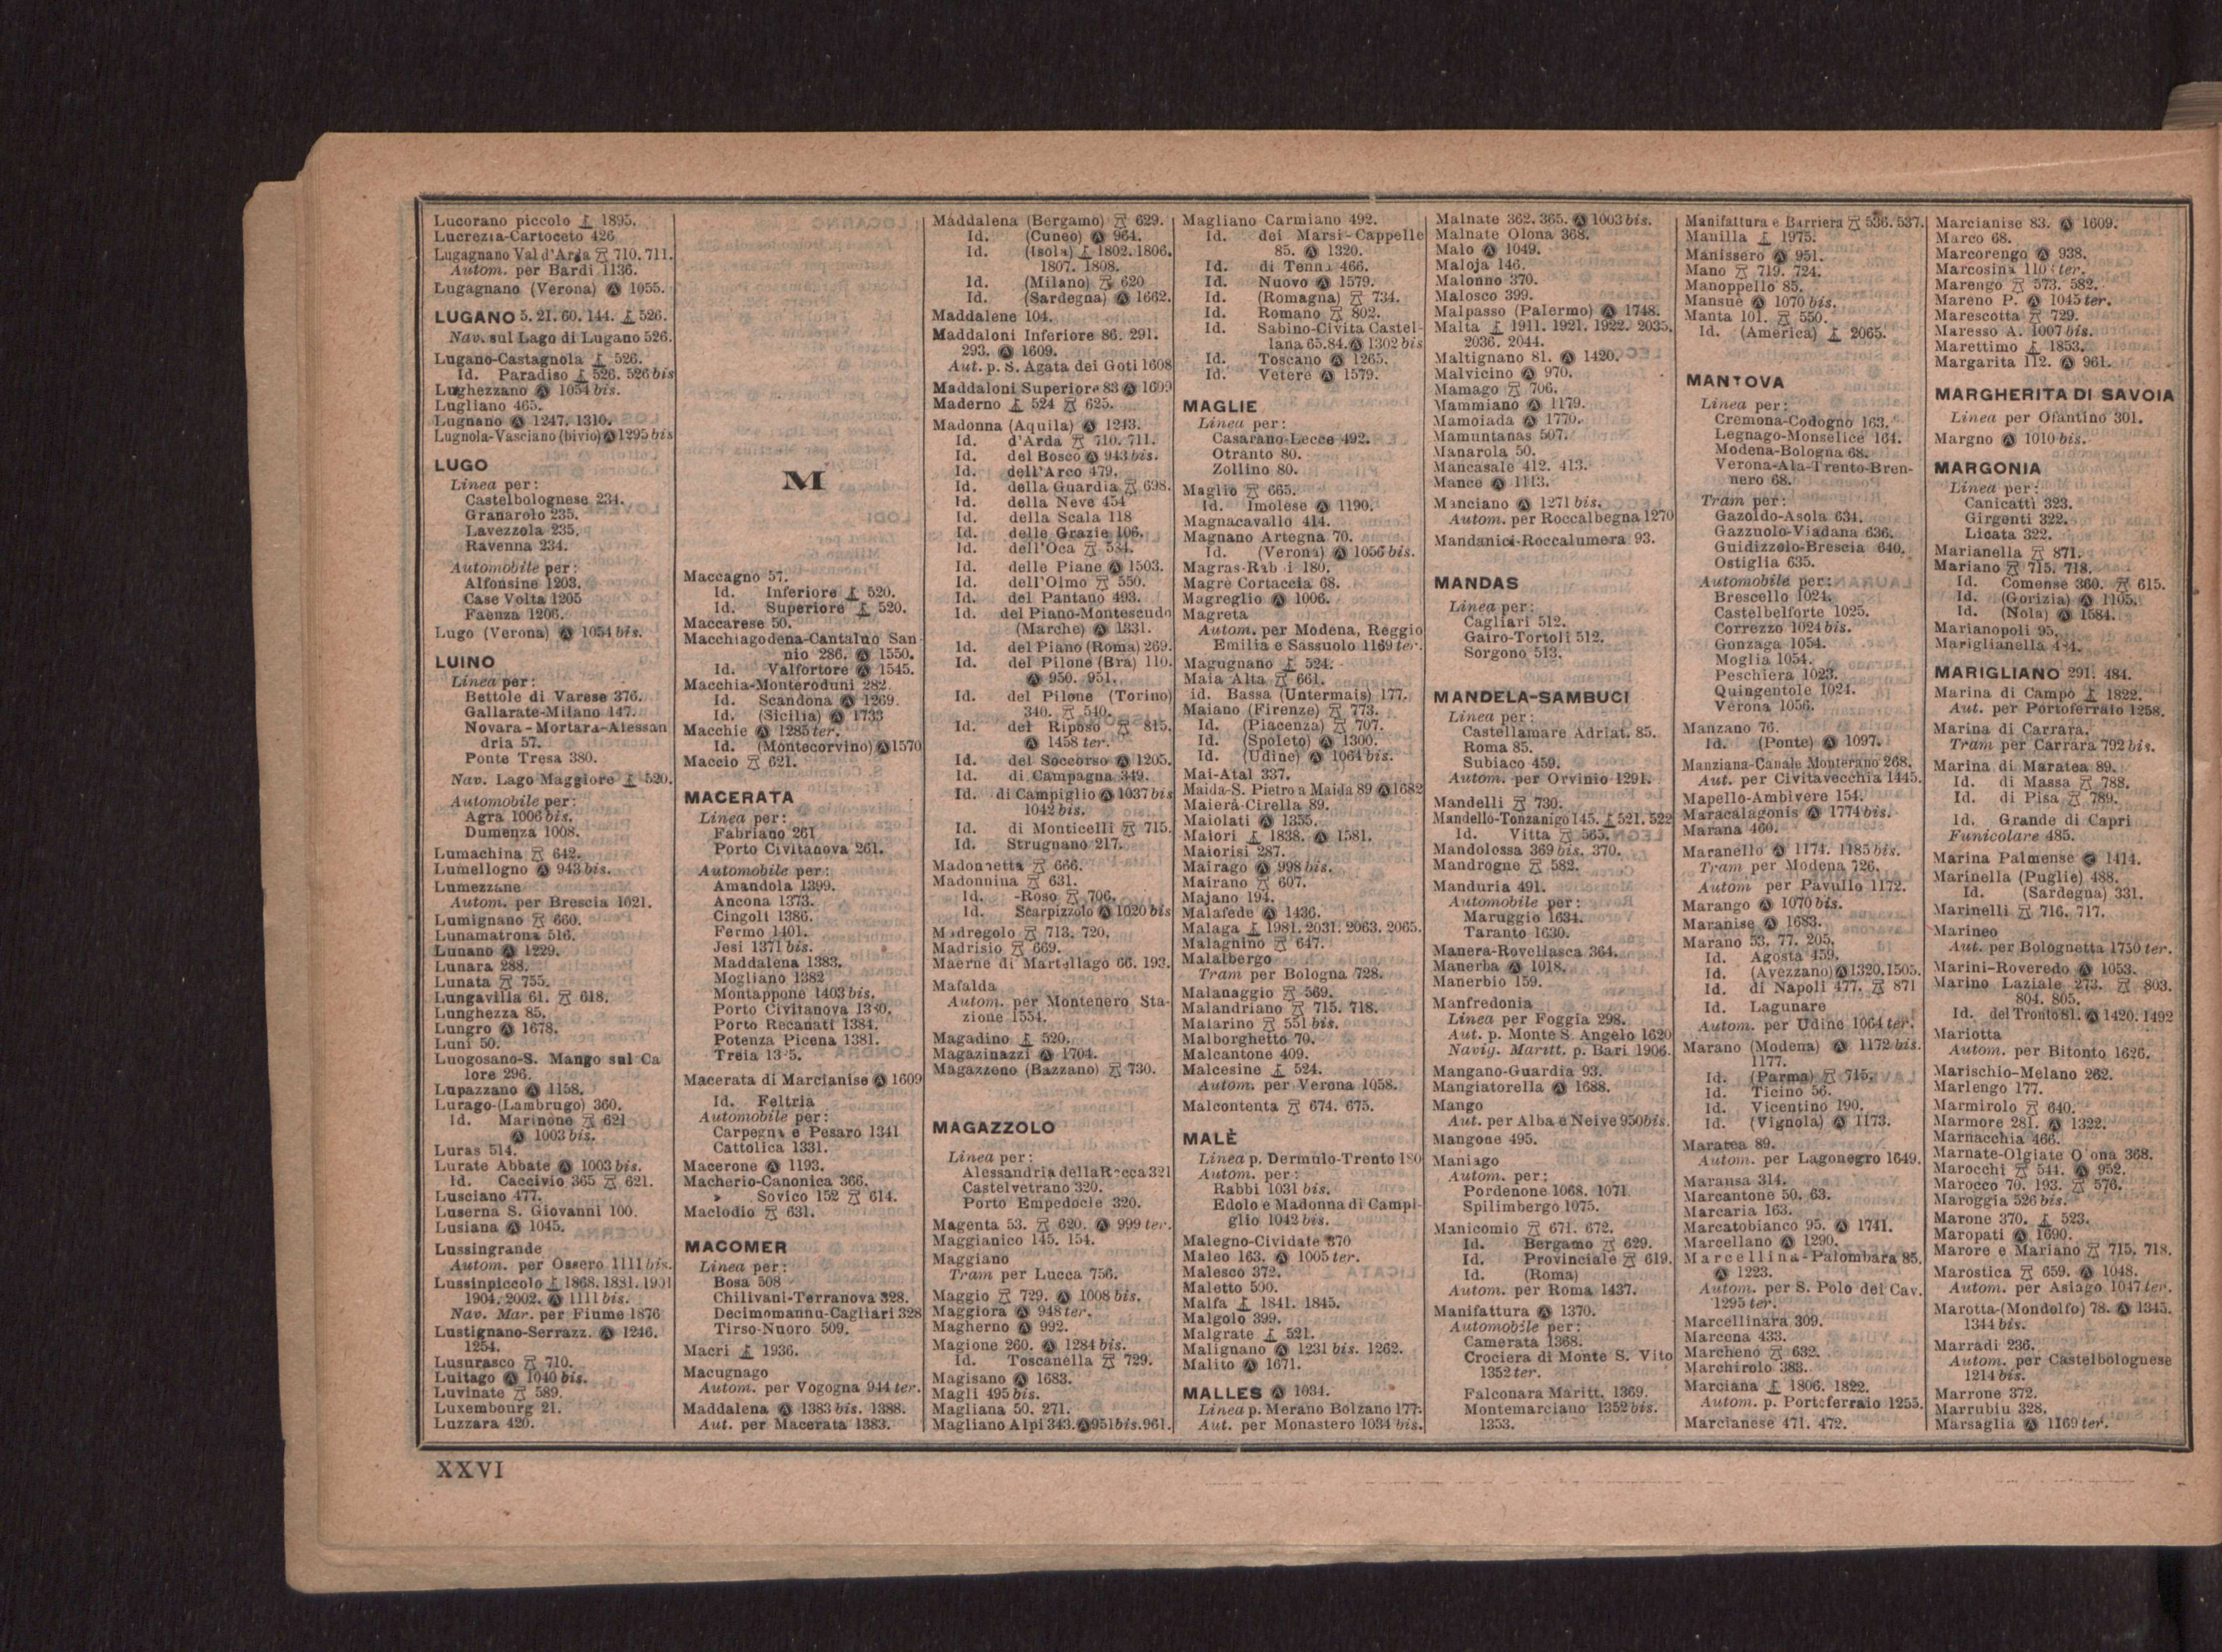 Lucorano piccolo 1895.
Lucrezia-Cartoceto 426
Lugagnano Val d'Arda 710. 711.
Autom. per Bardi 1136.
Lugagnano (Verona) Ⓐ 1055.
LUGANO 5. 21. 60. 144. 526.
Nav. sul Lago di Lugano 526.
Lugano-Castagnola 526.
Id. Paradiso 526. 526 bis
Lughezzano Ⓐ 1054 bis.
Lugliano 465.
Lugnano Ⓐ 1247. 1310.
Lugnola-Vasciano (bivio) Ⓐ 1295 bis
LUGO
Linea per:
Castelbolognese 234.
Granarolo 235.
Lavezzola 235.
Ravenna 234.
Automobile per:
Alfonsine 1203.
Case Volta 1205
Faenza 1206.
Lugo (Verona) Ⓐ 1054 bis.
LUINO
Linea per:
Bettole di Varese 376.
Gallarate-Milano 147.
Novara-Mortara-Alessan
dria 57.
Ponte Tresa 380.
Nav. Lago Maggiore 520.
Automobile per:
Agra 1006 bis.
Dumenza 1008.
Lumachina 642.
Lumellogno Ⓐ 943 bis.
Lumezzane
Autom. per Brescia 1021.
Lumignano 660.
Lunamatrona 516.
Lunano Ⓐ 1229.
Lunara 288.
Lunata 755.
Lungavilla 61. 618.
Lunghezza 85.
Lungro Ⓐ 1678.
Luni 50.
Luogosano-S. Mango sul Ca
lore 296.
Lupazzano Ⓐ 1158.
Lurago-(Lambrugo) 360.
Id. Marinone 621
Ⓐ 1003 bis.
Luras 514.
Lurate Abbate Ⓐ 1003 bis.
Id. Caccivio 365 621.
Lusciano 477.
Luserna S. Giovanni 100.
Lusiana Ⓐ 1045.
Lussingrande
Autom. per Ossero 1111 bis.
Lussinpiccolo 1868. 1881. 1901
1904. 2002. Ⓐ 1111 bis.
Nav. Mar. per Fiume 1876
Lustignano-Serrazz. Ⓐ 1246.
1254.
Lusurasco 710.
Luitago Ⓐ 1040 bis.
Luvinate 589.
Luxembourg 21.
Luzzara 420.
M
Maccagno 57.
Id. Inferiore 520.
Id. Superiore 520.
Maccarese 50.
Macchiagodena-Cantalup San
nio 286. Ⓐ 1550.
Id. Valfortore Ⓐ 1545.
Macchia-Monteroduni 282.
Id. Scandona Ⓐ 1269.
Id. (Sicilia) Ⓐ 1733
Macchie Ⓐ 1285 ter.
Id. (Montecorvino) Ⓐ 1570
Maccio 621.
MACERATA
Linea per:
Fabriano 261
Porto Civitanova 261.
Automobile per:
Amandola 1399.
Ancona 1373.
Cingoli 1386.
Fermo 1401.
Jesi 1371 bis.
Maddalena 1383.
Mogliano 1382
Montappone 1403 bis.
Porto Civitanova
Porto Recanati 1384.
Potenza Picena 1381.
Treia
Macerata di Marcianise Ⓐ 1609
Id. Feltria
Automobile per:
Carpegna e Pesaro 1341
Cattolica 1331.
Macerone Ⓐ 1193.
Macherio-Canonica 366.
» Sovico 152 614.
Maclodio 631.
MACOMER
Linea per:
Bosa 508
Chilivani-Terranova 328.
Decimomannu-Cagliari 328
Tirso-Nuoro 509.
Macri 1936.
Macugnago
Autom. per Vogogna 944 ter.
Maddalena Ⓐ 1383 bis. 1388.
Aut. per Macerata 1383.
Maddalena (Bergamo) 629.
Id. (Cuneo) Ⓐ 964.
Id. (Isola) 1802. 1806.
1807. 1808.
Id. (Milano) 620
Id. (Sardegna) Ⓐ 1662.
Maddalene 104.
Maddaloni Inferiore 86. 291.
293. Ⓐ 1609.
Aut. p. S. Agata dei Goti 1608
Maddaloni Superiore 83 Ⓐ 1609
Maderno 524 625.
Madonna (Aquila) Ⓐ 1243.
Id. d'Arda 710. 711.
Id. del Bosco Ⓐ 943 bis.
Id. dell'Arco 479.
Id. della Guardia 698.
Id. della Neve 454
Id. della Scala 118
Id. delle Grazie 106.
Id. dell'Oca 534.
Id. delle Piane Ⓐ 1503.
Id. dell'Olmo 550.
Id. del Pantano 493.
Id. del Piano-Montescudo
(Marche) Ⓐ 1331.
Id. del Piano (Roma) 269.
Id. del Pilone (Bra) 110.
Ⓐ 950. 951.
Id. del Pilone (Torino)
340. 540.
Id. del Riposo 815.
Ⓐ 1458 ter.
Id. del Soccorso Ⓐ 1205.
Id. di Campagna 349.
Id. di Campiglio Ⓐ 1037 bis
1042 bis.
Id. di Monticelli 715.
Id. Strugnano 217.
Madonnetta 666.
Madonnina 631.
Id. -Roso 706.
Id. Scarpizzolo Ⓐ 1020 bis
Madregolo 713. 720.
Madrisio 669.
Maerne di Martellago 66. 193.
Mafalda
Autom. per Montenero Sta-
zione 1554.
Magadino 520.
Magazinazzi Ⓐ 1704.
Magazzeno (Bazzano) 730.
MAGAZZOLO
Linea per:
Alessandria della Rocca 321
Castelvetrano 320.
Porto Empedocle 320.
Magenta 53. 620. Ⓐ 999 ter.
Maggianico 145. 154.
Maggiano
Tram per Lucca 756.
Maggio 729. Ⓐ 1008 bis.
Maggiora Ⓐ 948 ter.
Magherno Ⓐ 992.
Magione 260. Ⓐ 1284 bis.
Id. Toscanella 729.
Magisano Ⓐ 1683.
Magli 495 bis.
Magliana 50. 271.
Magliano Alpi 343. Ⓐ 951 bis. 961.
Magliano Carmiano 492.
Id. dei Marsi-Cappelle
85. Ⓐ 1320.
Id. di Tenna 466.
Id. Nuovo Ⓐ 1579.
Id. (Romagna) 734.
Id. Romano 802.
Id. Sabino-Civita Castel-
lana 65. 84. Ⓐ 1302 bis
Id. Toscano Ⓐ 1265.
Id. Vetere Ⓐ 1579.
MAGLIE
Linea per:
Casarano-Lecce 492.
Otranto 80.
Zollino 80.
Maglio 665.
Id. Imolese Ⓐ 1190.
Magnacavallo 414.
Magnano Artegna 70.
Id. (Verona) Ⓐ 1056 bis.
Magras-Rabbi 180.
Magrè Cortaccia 68.
Magreglio Ⓐ 1006.
Magreta
Autom. per Modena, Reggio
Emilia e Sassuolo 1169 ter.
Magugnano 524.
Maia Alta 661.
id. Bassa (Untermais) 177.
Maiano (Firenze) 773.
Id. (Piacenza) 707.
Id. (Spoleto) Ⓐ 1300.
Id. (Udine) Ⓐ 1064 bis.
Mai-Atal 337.
Maida-S. Pietro a Maida 89 Ⓐ 1682
Maierà-Cirella 89.
Maiolati Ⓐ 1355.
Maiori 1838. Ⓐ 1581.
Maiorisi 287.
Mairago Ⓐ 998 bis.
Mairano 607.
Majano 194.
Malafede Ⓐ 1436.
Malaga 1981. 2031. 2063. 2065.
Malagnino 647.
Malalbergo
Tram per Bologna 728.
Malanaggio 569.
Malandriano 715. 718.
Malarino 551 bis.
Malborghetto 70.
Malcantone 409.
Malcesine 524.
Autom. per Verona 1058.
Malcontenta 674. 675.
MALÈ
Linea p. Dermulo-Trento 180
Autom. per:
Rabbi 1031 bis.
Edolo e Madonna di Campi-
glio 1042 bis.
Malegno-Cividate 370
Maleo 163. Ⓐ 1005 ter.
Malesco 372.
Maletto 500.
Malfa 1841. 1845.
Malgolo 399.
Malgrate 521.
Malignano Ⓐ 1231 bis. 1262.
Malito Ⓐ 1671.
MALLES Ⓐ 1034.
Linea p. Merano Bolzano 177.
Aut. per Monastero 1034 bis.
Malnate 362. 365. Ⓐ 1003 bis.
Malnate Olona 368.
Malo Ⓐ 1049.
Maloja 146.
Malonno 370.
Malosco 399.
Malpasso (Palermo) Ⓐ 1748.
Malta 1911. 1921. 1922. 2035.
2036. 2044.
Maltignano 81. Ⓐ 1420.
Malvicino Ⓐ 970.
Mamago 706.
Mammiano Ⓐ 1179.
Mamoiada Ⓐ 1770.
Mamuntanas 507.
Manarola 50.
Mancasale 412. 413.
Mance Ⓐ 1113.
Manciano Ⓐ 1271 bis.
Autom. per Roccalbegna 1270
Mandanici-Roccalumera 93.
MANDAS
Linea per:
Cagliari 512.
Gairo-Tortoli 512.
Sorgono 513.
MANDELA-SAMBUCI
Linea per:
Castellamare Adriat. 85.
Roma 85.
Subiaco 459.
Autom. per Orvinio 1291.
Mandelli 730.
Mandello-Tonzanigo 145. 521. 522
Id. Vitta 565.
Mandolossa 369 bis. 370.
Mandrogne 582.
Manduria 491.
Automobile per:
Maruggio 1634.
Taranto 1630.
Manera-Rovellasca 364.
Manerba Ⓐ 1018.
Manerbio 159.
Manfredonia
Linea per Foggia 298.
Aut. p. Monte S. Angelo 1620
Navig. Maritt. p. Bari 1906.
Mangano-Guardia 93.
Mangiatorella Ⓐ 1688.
Mango
Aut. per Alba e Neive 950 bis.
Mangone 495.
Maniago
Autom. per:
Pordenone 1068. 1071
Spilimbergo 1075.
Manicomio 671. 672.
Id. Bergamo 629.
Id. Provinciale 619.
Id. (Roma)
Autom. per Roma 1437.
Manifattura Ⓐ 1370.
Automobile per:
Camerata 1368.
Crociera di Monte S. Vito
1352 ter.
Falconara Maritt. 1369.
Montemarciano 1352 bis.
1353.
Manifattura e Barriera 536. 537.
Manilla 1975.
Manissero Ⓐ 951.
Mano 719. 724.
Manoppello 85.
Mansuè Ⓐ 1070 bis.
Manta 101. 550.
Id. (America) 2065.
MANTOVA
Linea per:
Cremona-Codogno 163.
Legnago-Monselice 164.
Modena-Bologna 68.
Verona-Ala-Trento-Bren-
nero 68.
Tram per:
Gazoldo-Asola 634.
Gazzuolo-Viadana 636.
Guidizzolo-Brescia 640.
Ostiglia 635.
Automobile per:
Brescello 1024.
Castelbelforte 1025.
Correzzo 1024 bis.
Gonzaga 1054.
Moglia 1054.
Peschiera 1023.
Quingentole 1024.
Verona 1056.
Manzano 76.
Id. (Ponte) Ⓐ 1097.
Manziana-Canale Monterano 268.
Aut. per Civitavecchia 1445.
Mapello-Ambivere 154.
Maracalagonis Ⓐ 1774 bis.
Marana 460.
Maranello Ⓐ 1174. 1185 bis.
Tram per Modena 726.
Autom per Pavullo 1172.
Marango Ⓐ 1070 bis.
Maranise Ⓐ 1683.
Marano 53. 77. 205.
Id. Agosta 459.
Id. (Avezzano) Ⓐ 1320. 1505.
Id. di Napoli 477. 871
Id. Lagunare
Autom. per Udine 1064 ter.
Marano (Modena) Ⓐ 1172 bis.
1177.
Id. (Parma) 715.
Id. Ticino 56.
Id. Vicentino 190.
Id. (Vignola) Ⓐ 1173.
Maratea 89.
Autom. per Lagonegro 1649.
Maransa 314.
Marcantone 50. 63.
Marcaria 163.
Marcatobianco 95. Ⓐ 1741.
Marcellano Ⓐ 1290.
Marcellina-Palombara 85.
Ⓐ 1223.
Autom. per S. Polo dei Cav.
1295 ter.
Marcellinara 309.
Marcena 433.
Marcheno 632.
Marchirolo 383.
Marciana 1806. 1822.
Autom. p. Portoferraio 1255.
Marcianese 471. 472.
Marcianise 83. Ⓐ 1609.
Marco 68.
Marcorengo Ⓐ 938.
Marcosina ter.
Marengo 573. 582.
Mareno P. Ⓐ 1045 ter.
Marescotta 729.
Maresso A. 1007 bis.
Marettimo 1853.
Margarita 112. Ⓐ 961.
MARGHERITA DI SAVOIA
Linea per Ofantino 301.
Margno Ⓐ 1010 bis.
MARGONIA
Linea per:
Canicattì 323.
Girgenti 322.
Licata 322.
Marianella 871.
Mariano 715. 718.
Id. Comense 360. 615.
Id. (Gorizia) Ⓐ 1105.
Id. (Nola) Ⓐ 1584.
Marianopoli 95.
Mariglianella 484.
MARIGLIANO 291. 484.
Marina di Campo 1822.
Aut. per Portoferraio 1258.
Marina di Carrara.
Tram per Carrara 792 bis.
Marina di Maratea 89.
Id. di Massa 788.
Id. di Pisa 789.
Id. Grande di Capri
Funicolare 485.
Marina Palmense 1414.
Marinella (Puglie) 488.
Id. (Sardegna) 331.
Marinelli 716. 717.
Marineo
Aut. per Bolognetta 1750 ter.
Marini-Roveredo Ⓐ 1053.
Marino Laziale 273. 803.
804. 805.
Id. del Tronto 81. Ⓐ 1420. 1492
Mariotta
Autom. per Bitonto 1626.
Marischio-Melano 262.
Marlengo 177.
Marmirolo 640.
Marmore 281. Ⓐ 1322.
Marnacchia 466.
Marnate-Olgiate Olona 368.
Marocchi 544. Ⓐ 952.
Marocco 70. 193. 576.
Maroggia 526 bis.
Marone 370. 523.
Maropati Ⓐ 1690.
Marore e Mariano 715. 718.
Marostica 659. Ⓐ 1048.
Autom. per Asiago 1047 ter.
Marotta-(Mondolfo) 78. Ⓐ 1345.
1344 bis.
Marradi 236.
Autom. per Castelbolognese
1214 bis.
Marrone 372.
Marrubiu 328.
Marsaglia Ⓐ 1169 ter.
XXVI